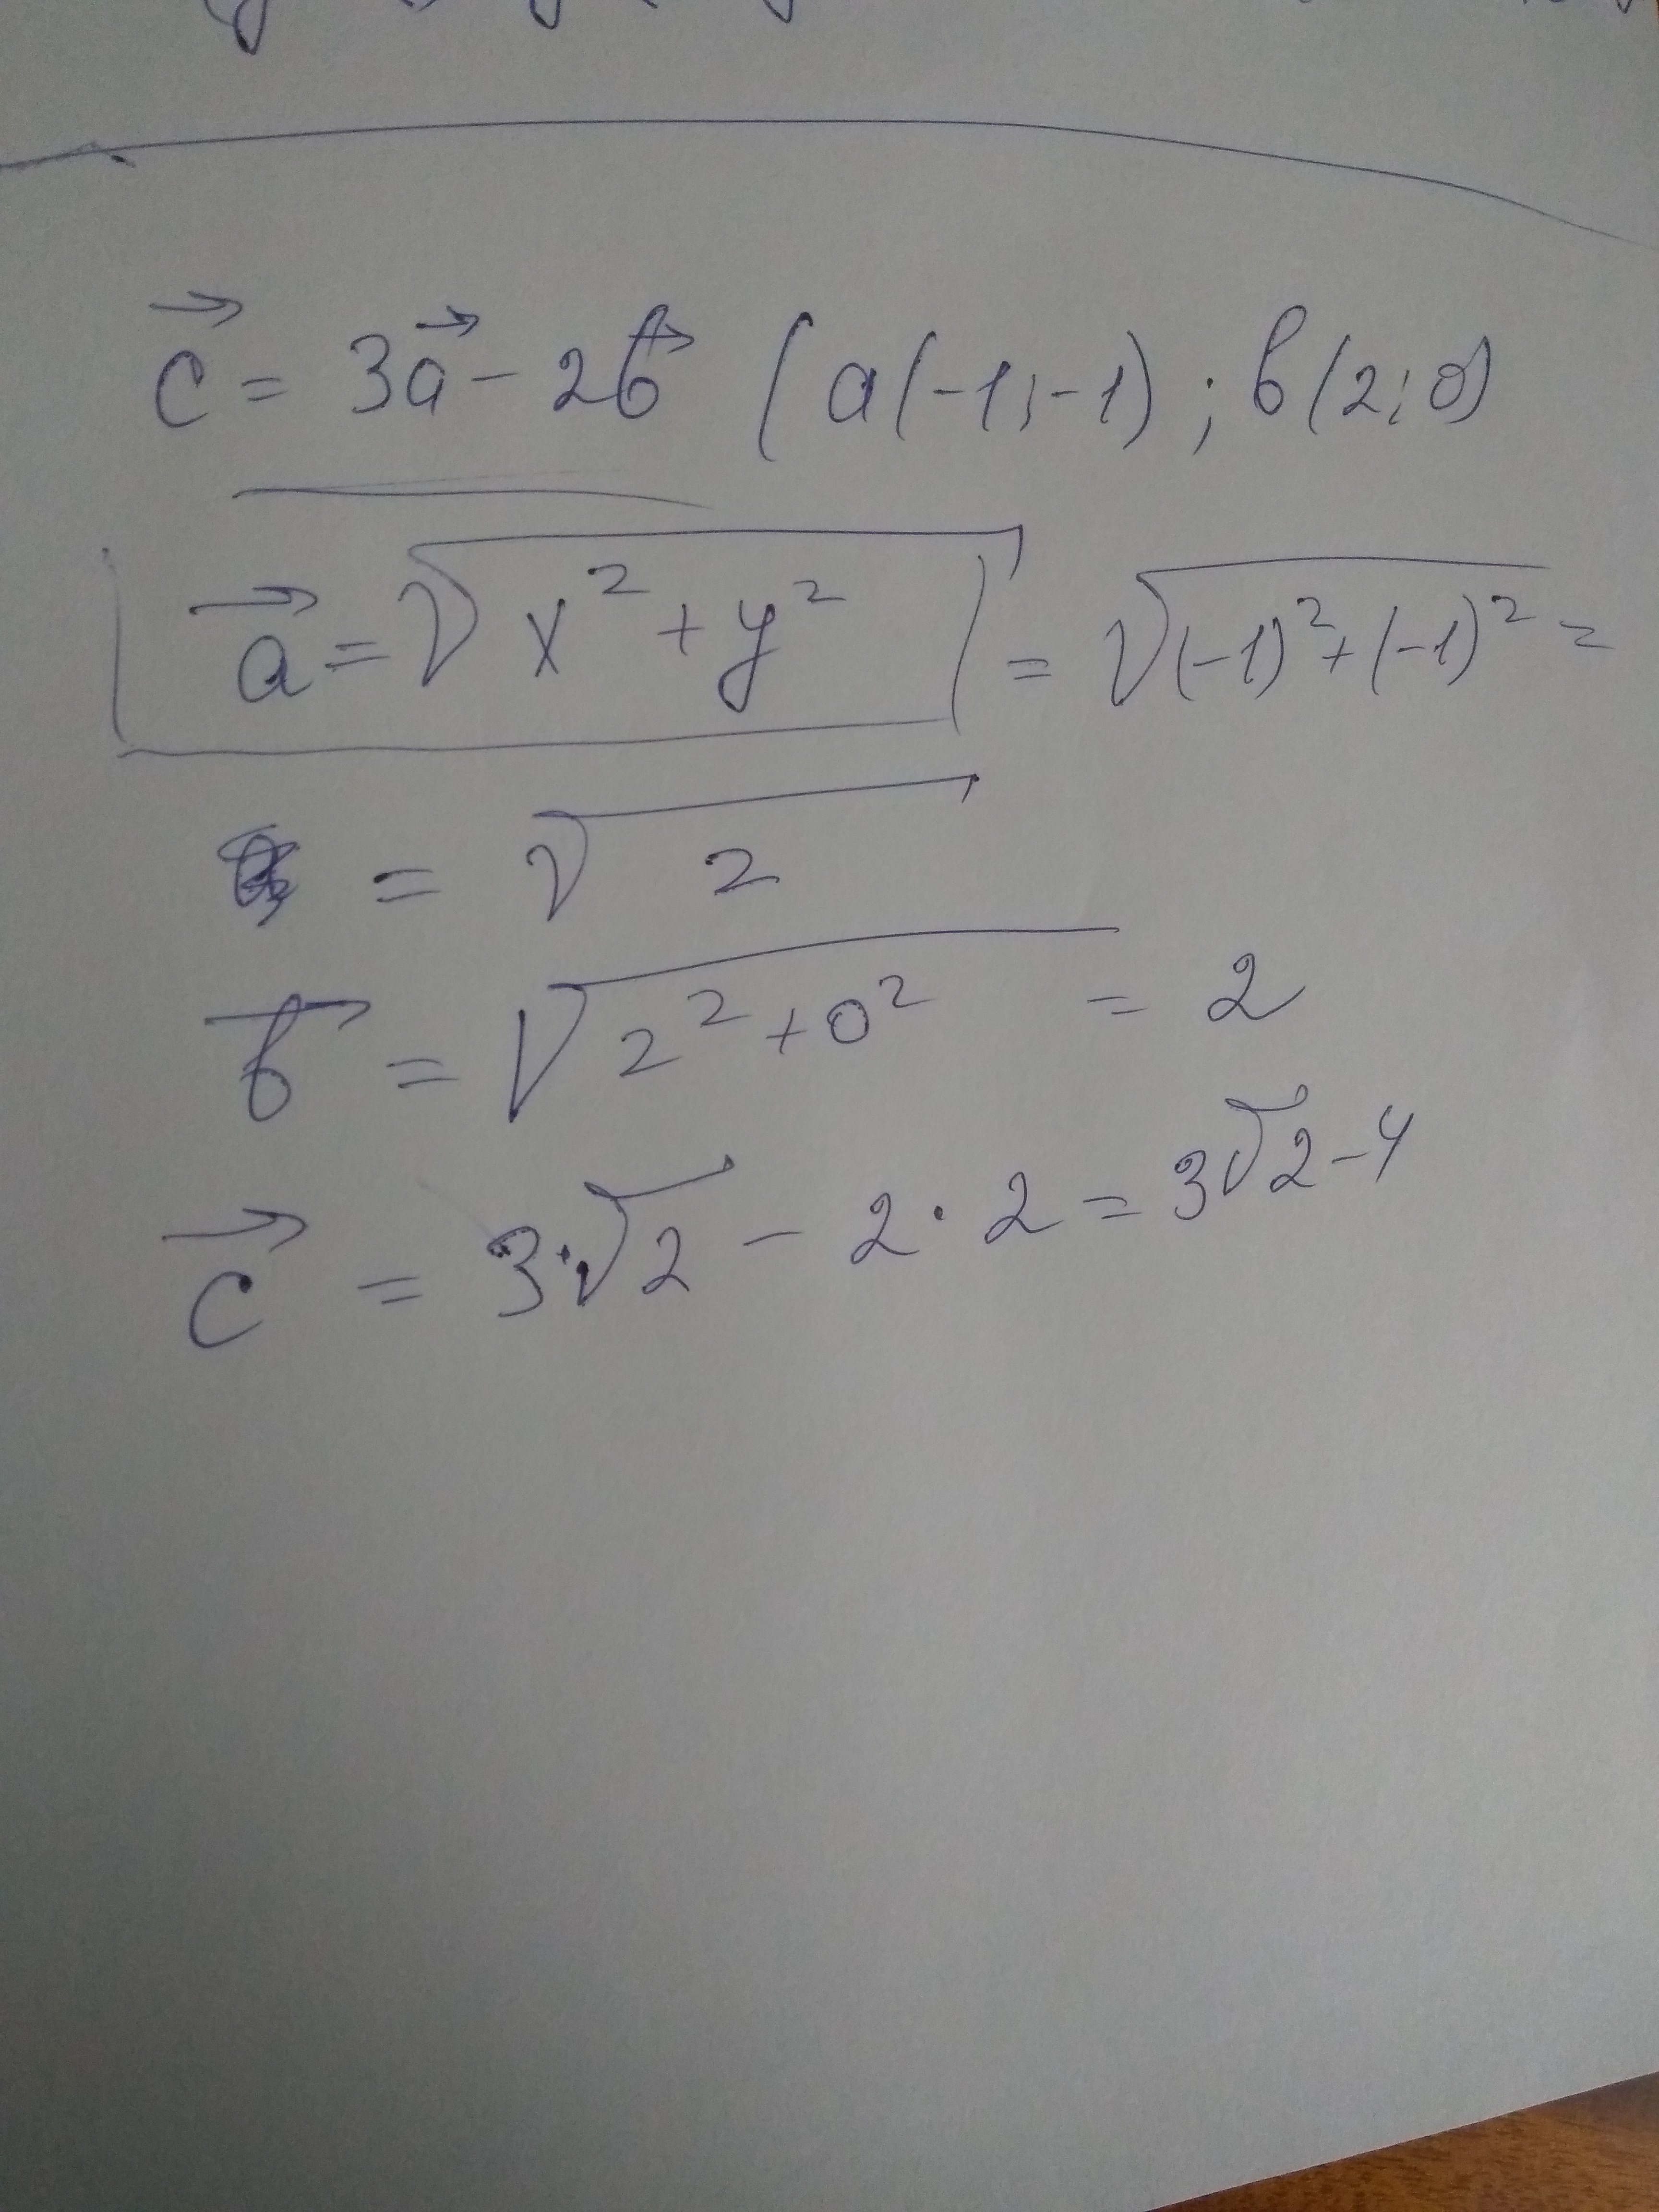 c⃗ = 3a⃗ - 2b⃗ (a(-1;-1); b(2;0)
a⃗ = √x² + y² = √(-1)² + (-1)² =
= √2
b⃗ = √2² + 0² = 2
c⃗ = 3·√2 - 2·2 = 3√2 - 4